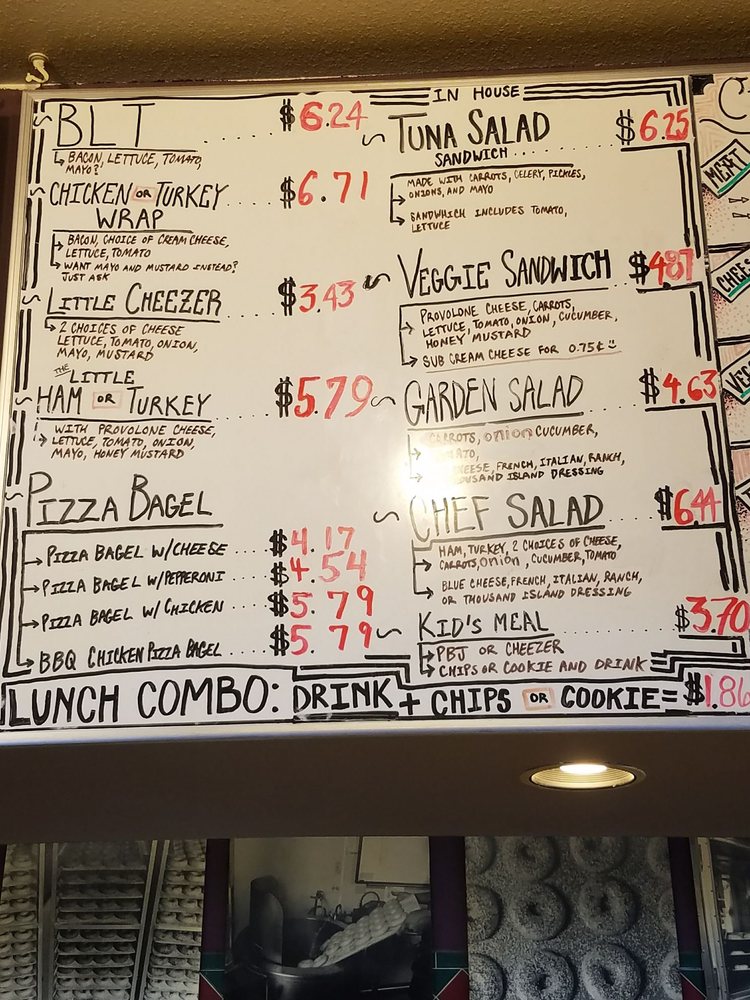 BLT $6.24
BACON, LETTUCE, TOMATO,
MAYO?
CHICKEN OR TURKEY $6.71
WRAP
BACON, CHOICE OF CREAM CHEESE,
LETTUCE, TOMATO
WANT MAYO AND MUSTARD INSTEAD?
JUST ASK
LITTLE CHEEZER $3.43
2 CHOICES OF CHEESE
LETTUCE, TOMATO, ONION,
MAYO, MUSTARD
THE LITTLE
HAM OR TURKEY $5.79
WITH PROVOLONE CHEESE,
LETTUCE, TOMATO, ONION,
MAYO, HONEY MUSTARD
PIZZA BAGEL
PIZZA BAGEL W/CHEESE $4.17
PIZZA BAGEL W/PEPPERONI $4.54
PIZZA BAGEL W/CHICKEN $5.79
BBQ CHICKEN PIZZA BAGEL $5.79
IN HOUSE
TUNA SALAD $6.25
SANDWICH
MADE WITH CARROTS, CELERY, PICKLES,
ONIONS, AND MAYO
SANDWHICH INCLUDES TOMATO,
LETTUCE
VEGGIE SANDWICH $4.87
PROVOLONE CHEESE, CARROTS,
LETTUCE, TOMATO, ONION, CUCUMBER,
HONEY MUSTARD
SUB CREAM CHEESE FOR 0.75¢
GARDEN SALAD $4.63
CARROTS, onion CUCUMBER,
CHEESE, FRENCH, ITALIAN, RANCH,
THOUSAND ISLAND DRESSING
CHEF SALAD $6.44
HAM, TURKEY, 2 CHOICES OF CHEESE,
CARROTS, onion, CUCUMBER, TOMATO
BLUE CHEESE, FRENCH, ITALIAN, RANCH,
OR THOUSAND ISLAND DRESSING
KID'S MEAL $3.70
PBJ OR CHEEZER
CHIPS OR COOKIE AND DRINK
LUNCH COMBO: DRINK + CHIPS OR COOKIE = $1.86
MEAT